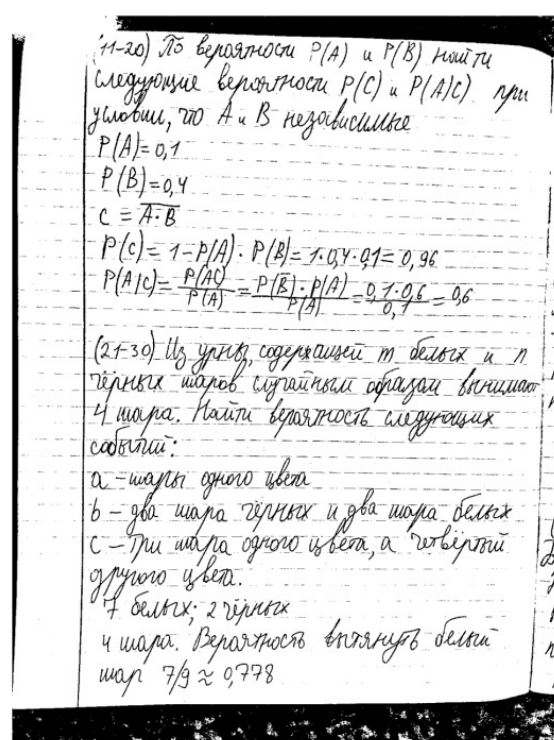 (11-20) По вероятности P(A) и P(B) найти
следующие вероятности P(C) и P(A|C) при
условии, что A и B независимые
P(A)=0,1
P(B)=0,4
C = \overline{A·B}
P(C)= 1-P(A)·P(B)=1·0,4·0,1= 0,96
P(A|C)= P(AC)/P(A) = P(\overline{B})·P(A)/P(A) = 0,1·0,6/0,1 = 0,6
(21-30) Из урны, содержащей m белых и n
чёрных шаров случайным образам вынимают
4 шара. Найти вероятность следующих
событий:
a - шары одного цвета
b - два шара чёрных и два шара белых
c - три шара одного цвета, а четвёртый
другого цвета.
7 белых; 2 чёрных
4 шара. Вероятность вытянуть белый
шар 7/9 ≈ 0,778